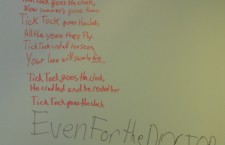 Tick Tock goes the clock,
Now summer's gone away
Tick Tock goes the clock
All the years they fly
Tick Tock all too soon
Your love will surely die
Tick Tock goes the clock,
He cradled and he rocked her
Tick Tock goes the clock
Even For the DOCTOR